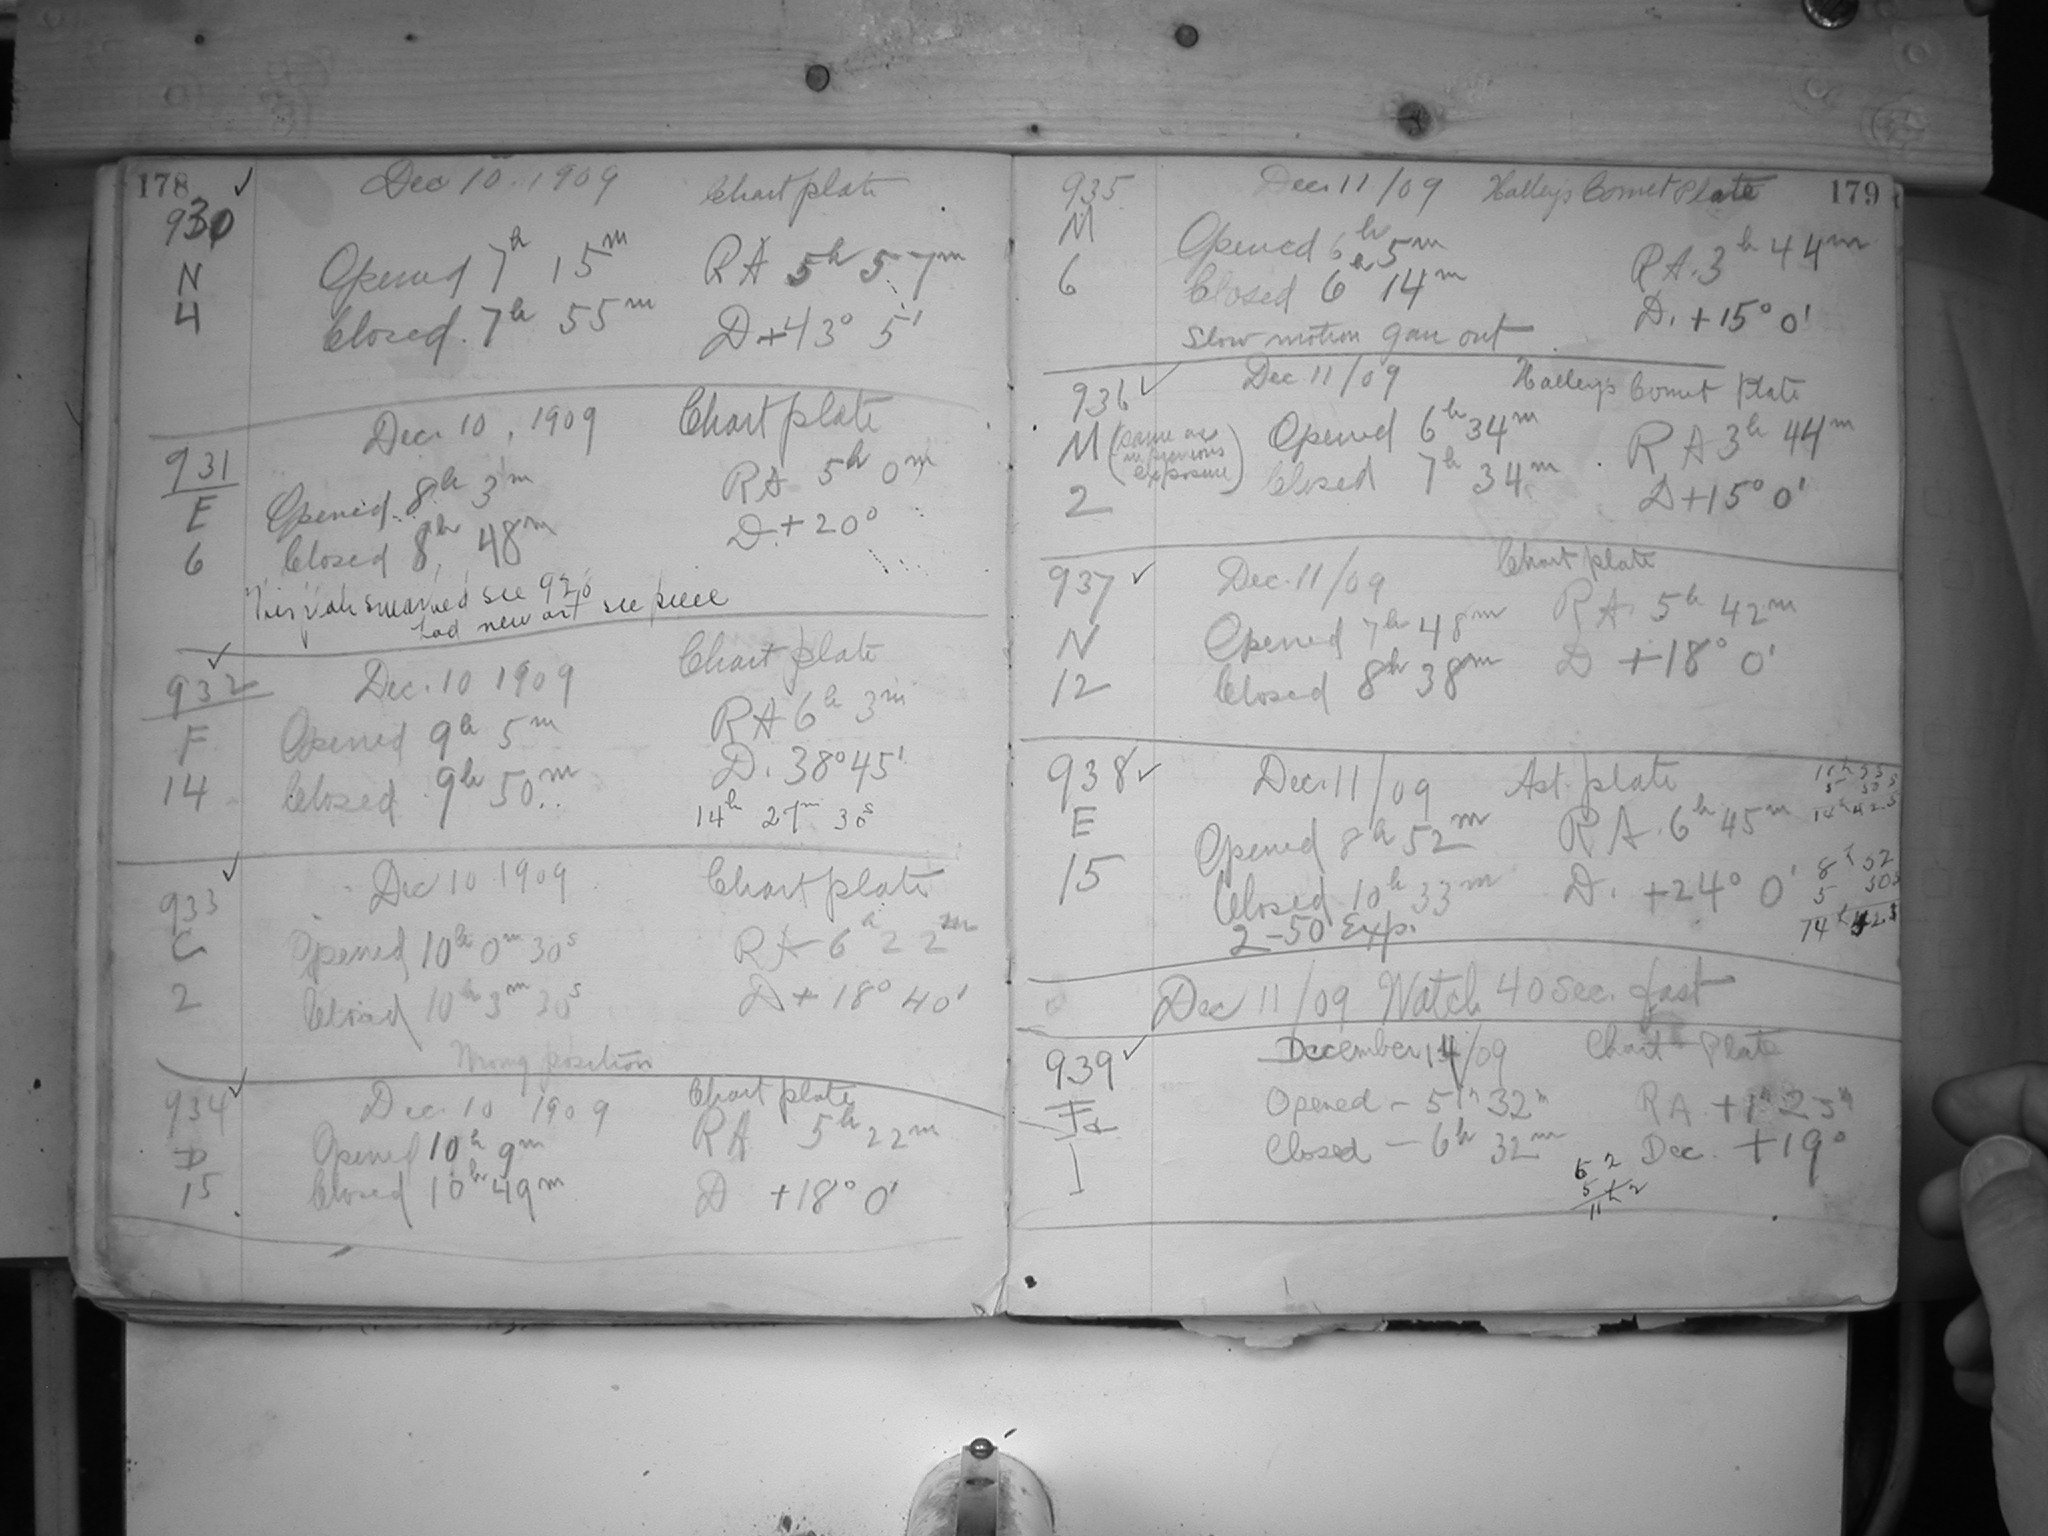 178 ✓ Dec 10. 1909 Chart plate
930
N
4
Opened 7h 15m RA 5h 57m
Closed. 7h 55m D+43° 5'
Dec. 10, 1909 Chart plate
931
E
6
Opened 8h 3m RA 5h 0m
Closed 8h 48m D.+20°
This plate smeared see 920
see piece
✓
932
F
14
Dec. 10 1909 Chart plate
Opened 9h 5m RA 6h 3m
Closed 9h 50m D. 38°45'
14h 27m 30s
✓
933
C
2
Dec 10 1909 Chart plate
Opened 10h 0m 30s RA 6h 22m
Closed 10h 3m 30s D+18° 40'
Wrong position
934 ✓
D
15
Dec. 10 1909 Chart plate
Opened 10h 9m RA 5h 22m
Closed 10h 49m D +18° 0'
935 Dec. 11/09 Halleys Comet Plate 179
M
6
Opened 6h 5m RA. 3h 44m
Closed 6h 14m D. +15° 0'
Slow motion gave out
936 ✓ Dec 11/09 Halley's Comet Plate
M (same as in previous exposure)
2
Opened 6h 34m RA 3h 44m
Closed 7h 34m D+15° 0'
937 ✓ Dec. 11/09 Chart plate
N
12
Opened 7h 48m RA. 5h 42m
Closed 8h 38m D +18° 0'
938 ✓ Dec. 11/09 Ast. plate
E
15
Opened 8h 52m RA. 6h 45m
Closed 10h 33m D. +24° 0'
2-50 Exp.
Dec 11/09 Watch 40 sec. fast
939 ✓ December 14/09 Chart Plate
1
Opened - 5h 32m RA +1h 25m
Closed - 6h 32m Dec. +19°